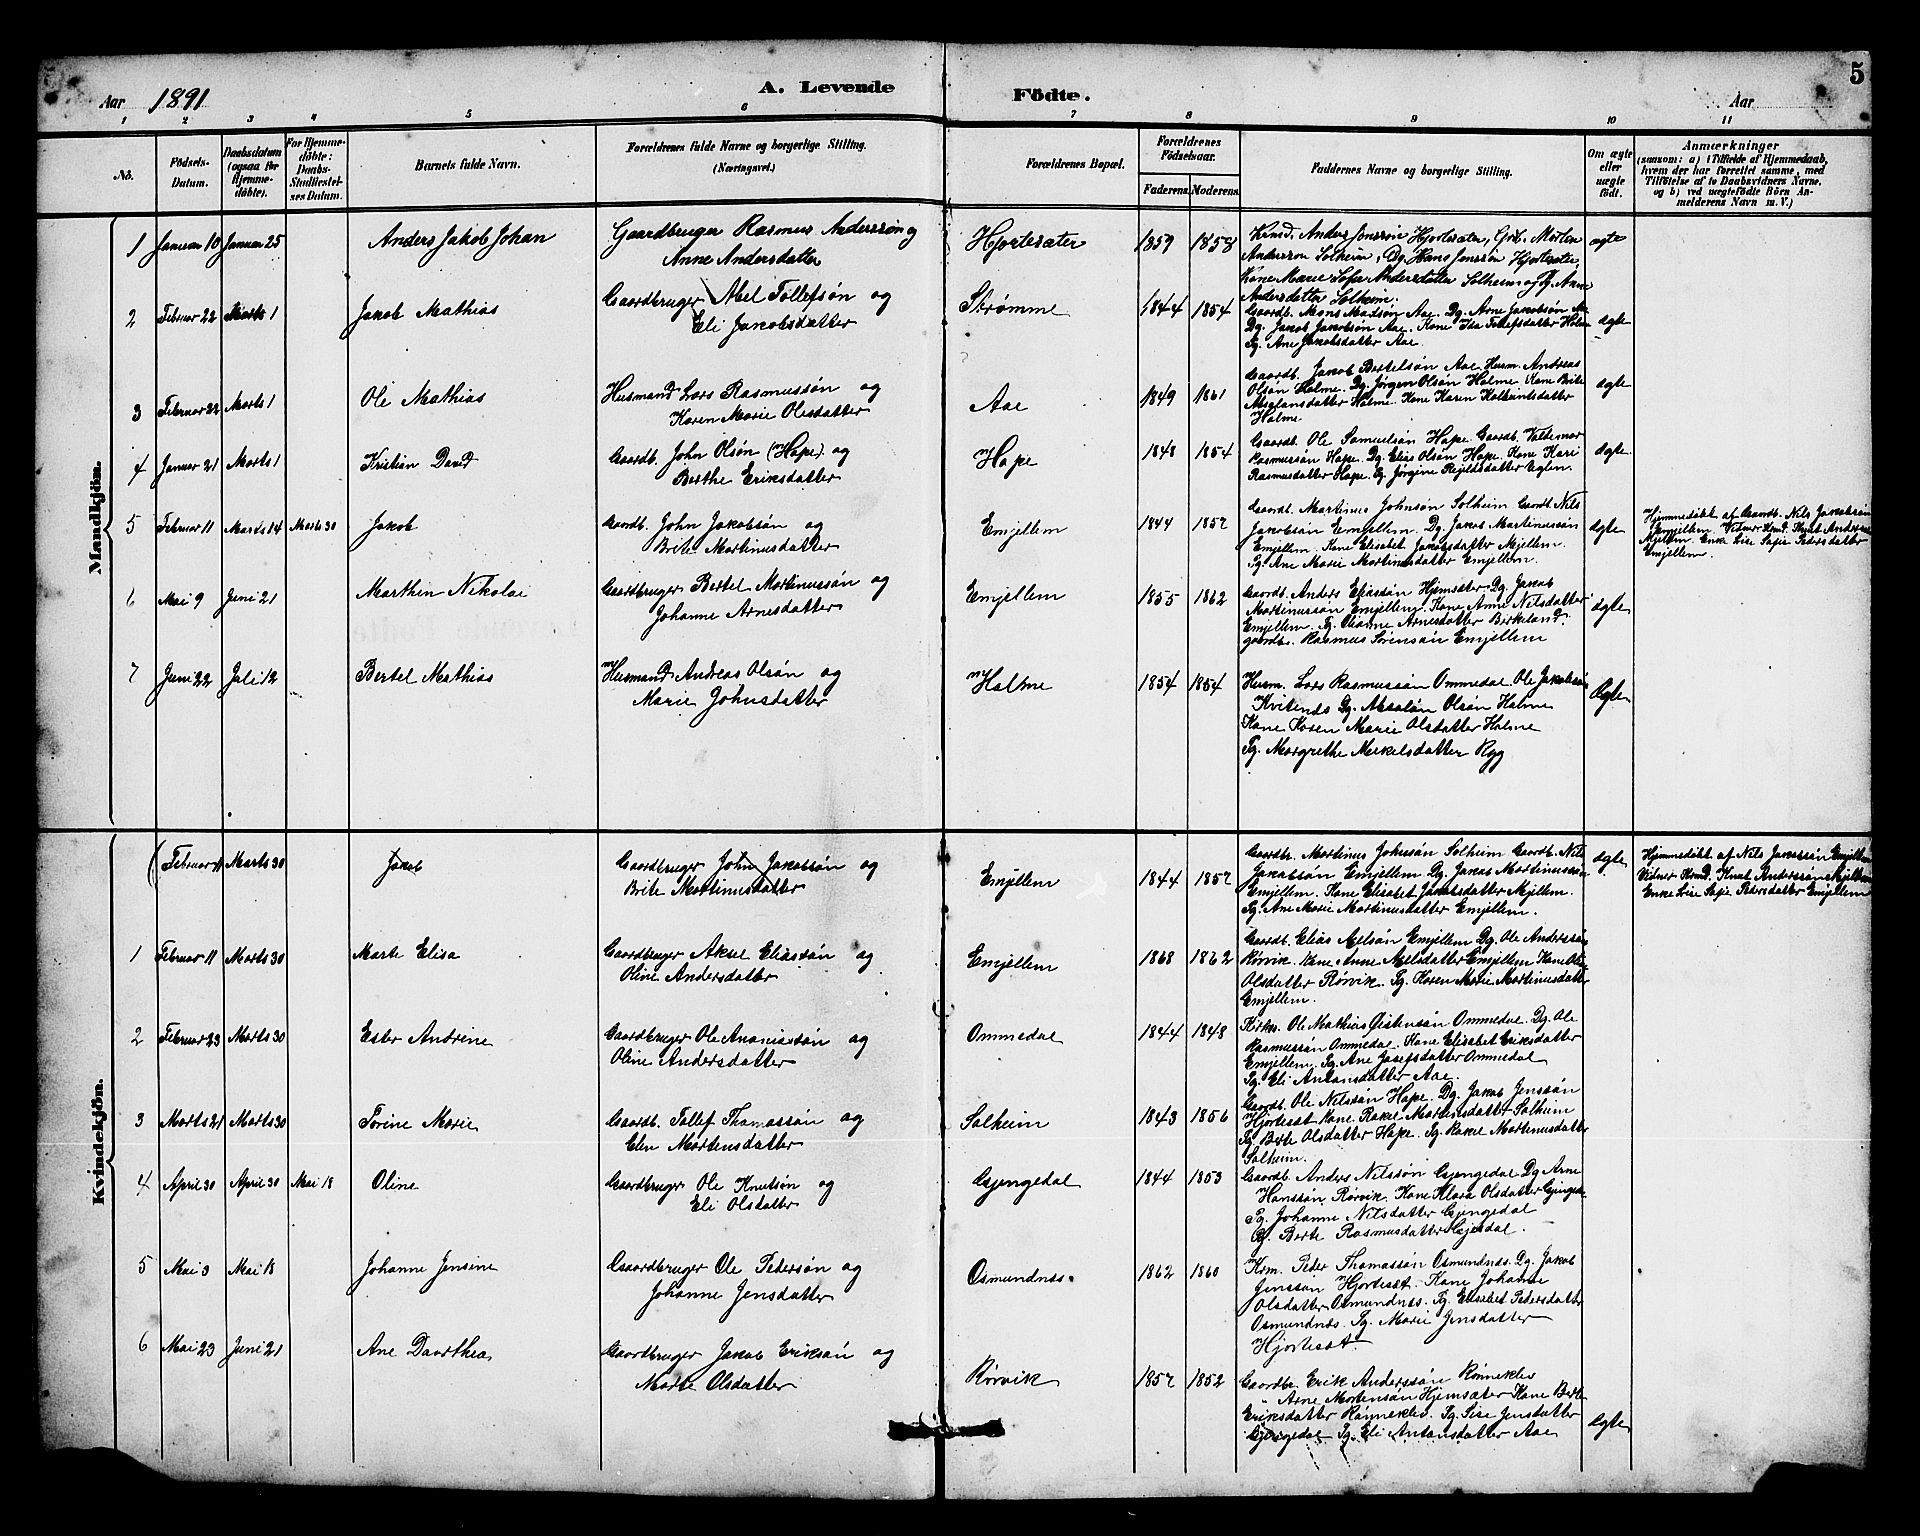 5
A. Levende Födte.
Aar 1891
Aar
1 2 3 4 5 6 7 8 9 10 11
No.
Födsels-Datum.
Daabsdatum (ogsaa for Hjemme-döbte).
For Hjemme-döbte: Daabs-Stadfæstel-ses Datum.
Barnets fulde Navn.
Forældrenes fulde Navne og borgerlige Stilling. (Næringsvei.)
Forældrenes Bopæl.
Forældrenes Födselsaar.
Faderens. Moderens.
Faddernes Navne og borgerlige Stilling.
Om ægte eller uægte födt.
Anmærkninger
(saasom: a) i Tilfælde af Hjemmedaab, hvem der har forrettet samme, med Tilföielse af to Daabsvidners Navne, og b) ved uægtefödte Börn An-melderens Navn m. V.)
Mandkjön.
1 Januar 10 Januar 25 Anders Jakob Johan Gaardbruger Rasmus Anderssøn og
Anne Andersdatter
Hjortesæter 1859 1858
Kmd. Anders Jonssøn Hjortesæter, Gbr. Morten
Anderssøn Solheim, Dg. Hans Jenssøn Hjortesæter,
Kone Marie Sofie Andersdatter Solheim og Pg. Anne
Andersdatter Solheim.
ægte
2 Februar 22 Marts 1 Jakob Mathias Gaardbruger Abel Tollefsøn og
Eli Jakobsdatter
Strømme 1844 1854
Gaardb. Mons Madsøn Aae. Dg. Arne Jakobsøn Aae
Dg. Jakob Jakobsøn Aae. Kone Ida Tollefsdatter Holme
Pg. Ane Jakobsdatter Aae.
ægte
3 Februar 22 Marts 1 Ole Mathias Husmand Lars Rasmussøn og
Karen Marie Olesdatter
Aae 1849 1861
Gaardb. Jakob Bertelsøn Aae. Husm. Andreas
Olsøn Holme. Dg. Jørgen Olsøn Holme. Kone Brite
Absolonsdatter Holme. Kone Karen Kolbentsdatter
Holme
ægte
4 Januar 21 Marts 1 Kristian David Gaardb. John Olsøn (Hope) og
Berthe Eriksdatter
Hope 1848 1854
Gaardb. Ole Samuelsøn Hope. Gaardb. Valdemar
Rasmussøn Hope. Dg. Elias Olsøn Hope. Kone Kari
Rasmusdatter Hope. Pg. Jørgine Rejildsdatter Eglen
ægte
5 Februar 11 Marts 14 Marts 30 Jakob Gaardb. John Jakobsøn og
Brite Martinusdatter
Emjellem 1844 1857
Gaardb. Martinus Johnsøn Solheim Gaardb. Nils
Jakobsøn Emjellem. Dg. Jakob Martinussøn
Emjellem. Kone Elisabet Jakobsdatter Mjellem.
Pg. Ane Marie Martinusdatter Emjellem.
ægte
Hjemmedøbt af Gaardb. Nils Jakobssøn
Emjellem. Vidner Kmd. Knut Anderssøn
Mjellem. Enke Lise Sofie Pedersdatter
Emjellem.
6 Mai 9 Juni 21 Marthin Nikolai Gaardbruger Bertel Martinussøn og
Johanne Arnesdatter
Emjellem 1855 1862
Gaardb. Anders Eliassøn Hjemsæter. Dg. Jakob
Martinussøn Emjellem. Kone Anne Nilsdatter
Emjellem. Pg. Oleanne Arnesdatter Birkeland.
gaardb. Rasmus Sørensøn Emjellem
ægte
7 Juni 22 Juli 12 Bertel Mathias Husmand Andreas Olsøn og
Marie Johnsdatter
Holme 1854 1854
Husm. Lars Rasmussøn Ommedal. Ole Jakobsøn
Kvitenes Dg. Absalon Olsøn Holme
Kone Karen Marie Olsdatter Holme
Pg. Margrethe Mikelsdatter Rygg
Ægte
Kvindekjön.
(Februar 11 Marts 30 Jakob Gaardbruger John Jakobsøn og
Brite Martinusdatter
Emjellem 1844 1857
Gaardbr. Martinus Johnsøn Solheim Gaardb. Nils
Jakobsøn Emjellem Dg. Jakob Martinussøn
Emjellem. Kone Elisabet Jakobsdatter Mjellem.
Pg. Ane Marie Martinusdatter Emjellem.
ægte
Hjemmedøbt af Nils Jakobssøn Emjellem
Vidner Kmd. Knut Anderssøn Mjellem
Enke Lise Sofie Pedersdatter Emjellem
1 Februar 11 Marts 30 Marte Elisa Gaardbruger Aksel Eliassøn og
Oline Andersdatter
Emjellem 1868 1862
Gaardb. Elias Abelsøn Emjellem Dg. Ole Anderssøn
Rørvik. Kone Anne Abelsdatter Emjellem Kone
Olsdatter Rørvik. Pg. Karen Marie Martinusdatter
Emjellem.
2 Februar 23 Marts 30 Ester Andrine Gaardbruger Ole Ananiassøn og
Oline Andersdatter
Ommedal 1844 1848
Kirks. Ole Mathias Øistensøn Ommedal. Dg. Ole
Rasmussøn Ommedal. Kone Elisabet Eriksdatter
Emjellem. Pg. Ane Josefsdatter Ommedal
Pg. Eli Antonsdatter Aae.
3 Marts 21 Marts 30 Torine Marie Gaardb. Tollef Thomassøn og
Elen Mortensdatter
Solheim 1843 1856
Gaardb. Ole Nilssøn Hope. Dg. Jakob Jenssøn
Hjorteset Kone Rakel Mortensdatter Solheim
Pg. Berte Olsdatter Hope. Pg. Rakel Martinusdatter
Solheim.
4 April 30 April 30 Mai 18 Oline Gaardbruger Ole Knutsøn og
Eli Olsdatter
Gjengedal 1844 1853
Gaardb. Anders Nilssøn Gjengedal Dg Arne
Hanssøn Rørvik. Kone Klara Olsdatter Gjengedal
Pg. Johanne Nilsdatter Gjengedal
Pg. Berte Rasmusdatter
5 Mai 3 Mai 18 Johanne Jensine Gaardbruger Ole Pedersøn og
Johanne Jensdatter
Osmundnes. 1862 1860
Krm. Peder Thomassøn Osmundnes. Dg. Jakob
Jenssøn Hjorteset. Kone Johanne
Olsdatter Osmundnes. Pg. Elisabet Pedersdatter
Osmundnes. Pg. Marie Jensdatter
Hjorteset.
6 Mai 23 Juni 21 Ane Dorthea Gaardbruger Jakob Eriksøn og
Marte Olsdatter
Rørvik 1857 1852
Gaardbr. Erik Anderssøn Rønneklev
" Arne Mortensøn Hjemsæter Kone Berte
Eriksdatter Rønneklev. Pg. Lise Jensdatter
Gjengedal Pg. Eli Antonsdatter Aae
ægte